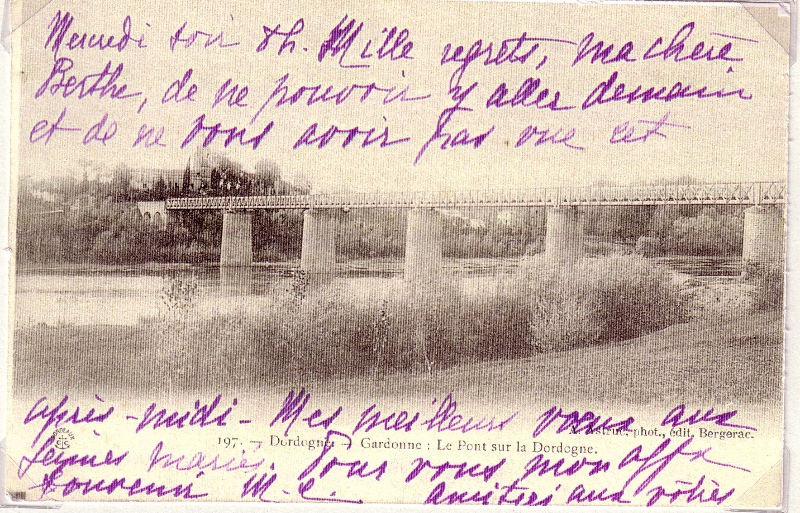 Mercredi soir 8h. Mille regrets, ma chère
Berthe, de ne pouvoir y aller demain
et de ne vous avoir pas vue cet
après-midi - Mes meilleurs vœux aux
A. Astruc, phot., édit. Bergerac.
197. — Dordogne — Gardonne : Le Pont sur la Dordogne.
jeunes mariés. Pour vous mon aff.
souvenir M. C. amitiés aux vôtres